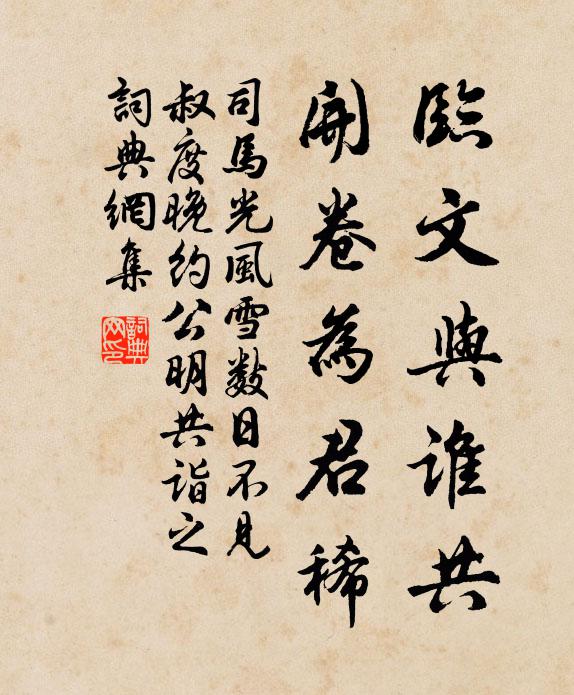 臨文與誰共
開卷為君稀
司馬光風雪數日不見
叔度晚約公明共詣之
詞典網集
詞典
网印